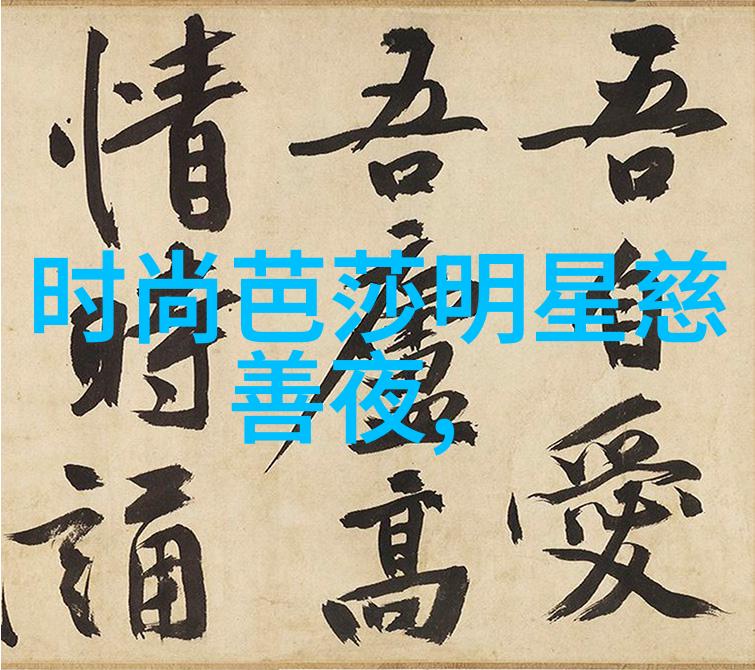 时尚芭莎明星慈
善夜,
吾自愛
吾廬高
情時誦